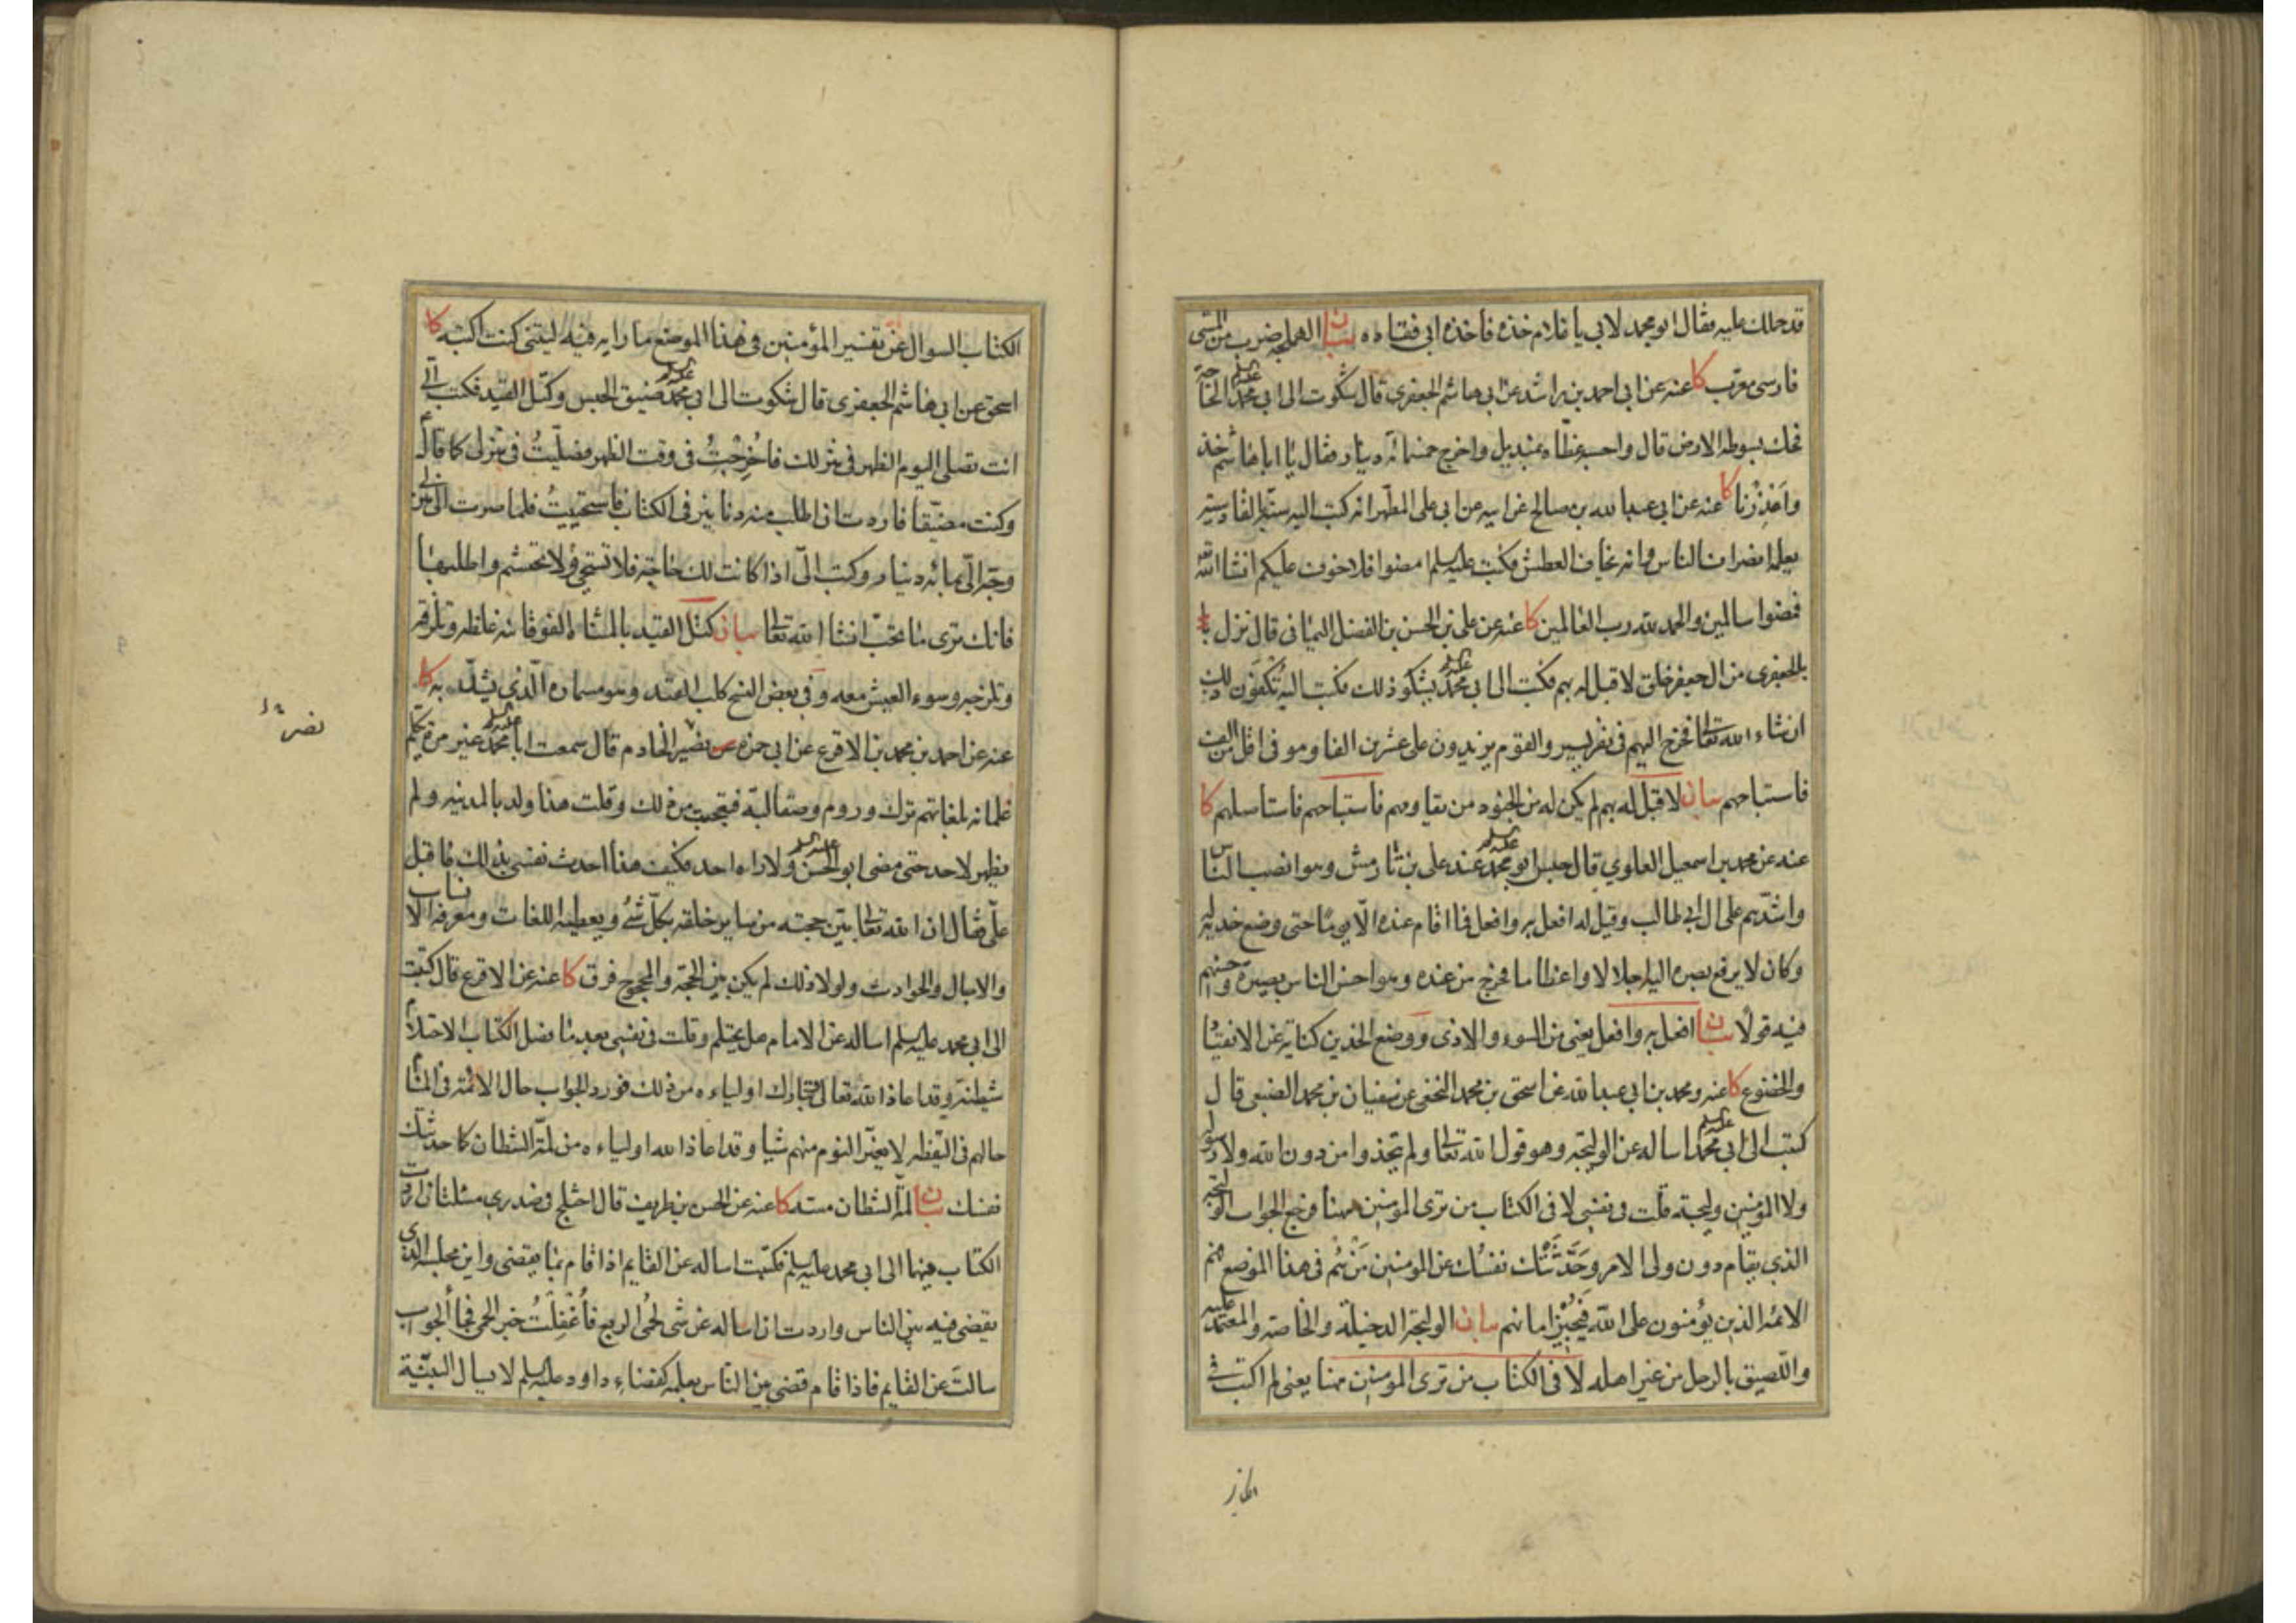 قد حملك عليه فقال ابو محمد لابي يا غلام خذه فاخذه ابي فقاده بيان الهملجه ضرب من المشى
فارسى معرب كا عنه عن ابي احمد بن راشد عن ابي هاشم الجعفرى قال شكوت الى ابي محمد عليه السلم الحاجة
فحك بسوطه الارض قال واحسبه غطاه بمنديل واخرج خمسمائه دينار فقال يا ابا هاشم خذ
واعذرنا كا عنه عن ابي عبد الله بن صالح عن ابيه عن ابي على المطهر انه كتب اليه سنة القادسيه
يعلمه انصراف الناس وانه يخاف العطش فكتب عليه السلم امضوا فلا خوف عليكم انشا الله
فمضوا سالمين والحمد لله رب العالمين كا عنه عن على بن الحسن بن الفضل اليمانى قال نزل
بالجعفرى من ال جعفر خلق لا قبل له بهم فكتب الى ابي محمد عليه السلم يشكو ذلك فكتب اليه تكفون ذلك
ان شاء الله تعالى فخرج اليهم فى نفر يسير والقوم يزيدون على عشرين الفا وهو فى اقل من الف
فاستباحهم بيان لا قبل له بهم لم يكن له من الجنود من يقاومهم فاستباحهم فاستاصلهم كا
عنه عن محمد بن اسمعيل العلوي قال حبس ابو محمد عليه السلم عند على بن نارمش وهو انصب الناس
واشدهم على ال ابي طالب وقيل له افعل به وافعل فما اقام عنده الا يوما حتى وضع خديه له
وكان لا يرفع بصره اليه اجلالا واعظاما فخرج من عنده وهو احسن الناس بصيرة واحسنهم
فيه قولا بيان افعل به وافعل يعنى من السوء والاذى ووضع الخدين كناية عن الانقياد
والخضوع كا عنه ومحمد بن ابي عبد الله عن اسحق بن محمد النخعى عن سفيان بن محمد الضبعى قال
كتبت الى ابي محمد عليه السلم اساله عن الوليجة وهو قول الله تعالى ولم يتخذوا من دون الله ولا رسوله
ولا المؤمنين وليجة قلت فى نفسى لا فى الكتاب من ترى المومنين ههنا فرجع الجواب الوليجة
الذي يقام دون ولى الامر وحدثتك نفسك عن المومنين من هم فى هذا الموضع فهم
الائمه الذين يؤمنون على الله فيجيز امانهم بيان الوليجة الدخيلة والخاصة والمعتمد عليه
واللصيق بالرجل من غير اهله لا فى الكتاب من ترى المومنين ههنا يعنى لم اكتب فى
الكتاب السوال عن تفسير المؤمنين فى هذا الموضع ما رايه فيه ليتنى كنت اكتبه كا
اسحق عن ابي هاشم الجعفرى قال شكوت الى ابي محمد عليه السلم ضيق الحبس وكتل القيد فكتب الى
انت تصلى اليوم الظهر فى منزلك فاخرجت فى وقت الظهر فصليت فى منزلى كما قال
وكنت مضيقا فاردت ان اطلب منه دنانير فى الكتاب فاستحييت فلما صرت الى منزلى
وجه الى بمائه دينار وكتب الى اذا كانت لك حاجة فلا تستحى ولا تحتشم واطلبها
فانك ترى ما تحب انشا الله تعالى بيان كتل القيد بالمثناة الفوقانيه غلظه وتلزقه
وتلزجه وسوء العيش معه وفى بعض النسخ كلب القيد وهو مسماره الذي يشد به كا
عنه عن احمد بن محمد بن الاقرع عن ابي حمزه نصير الخادم قال سمعت ابا محمد عليه السلم غير مرة يكلم
غلمانه بلغاتهم ترك وروم وصقالبة فتعجبت من ذلك وقلت هذا ولد بالمدينه ولم
يظهر لاحد حتى مضى ابو الحسن عليه السلم ولا راه احد فكيف هذا احدث نفسى بذلك فاقبل
على فقال ان الله تعالى بين حجته من ساير خلقه بكل شئ ويعطيه اللغات ومعرفة الانساب
والاجال والحوادث ولولا ذلك لم يكن بين الحجة والمحجوج فرق كا عنه عن الاقرع قال كتبت
الى ابي محمد عليه السلم اساله عن الامام هل يحتلم وقلت فى نفسى بعد ما فصل الكتاب الاحتلام
شيطنة وقد اعاذ الله تعالى تبارك اولياءه من ذلك فورد الجواب حال الائمة فى المنام
حالهم فى اليقظه لا يغير النوم منهم شيا وقد اعاذ الله اولياءه من لمة الشطان كما حدثتك
نفسك بيان لمة الشطان مسه كا عنه عن الحسن بن ظريف قال اختلج فى صدرى مسئلتان اردت
الكتاب فيهما الى ابي محمد عليه السلم فكتبت اساله عن القايم اذا قام بما يقضى واين مجلسه الذى
يقضى فيه بين الناس واردت ان اساله عن شى لحمى الربع فاغفلت خبر الحمى فجا الجواب
سالت عن القايم فاذا قام قضى بين الناس بعلمه كقضاء داود عليه السلم لا يسال البينة
نصر